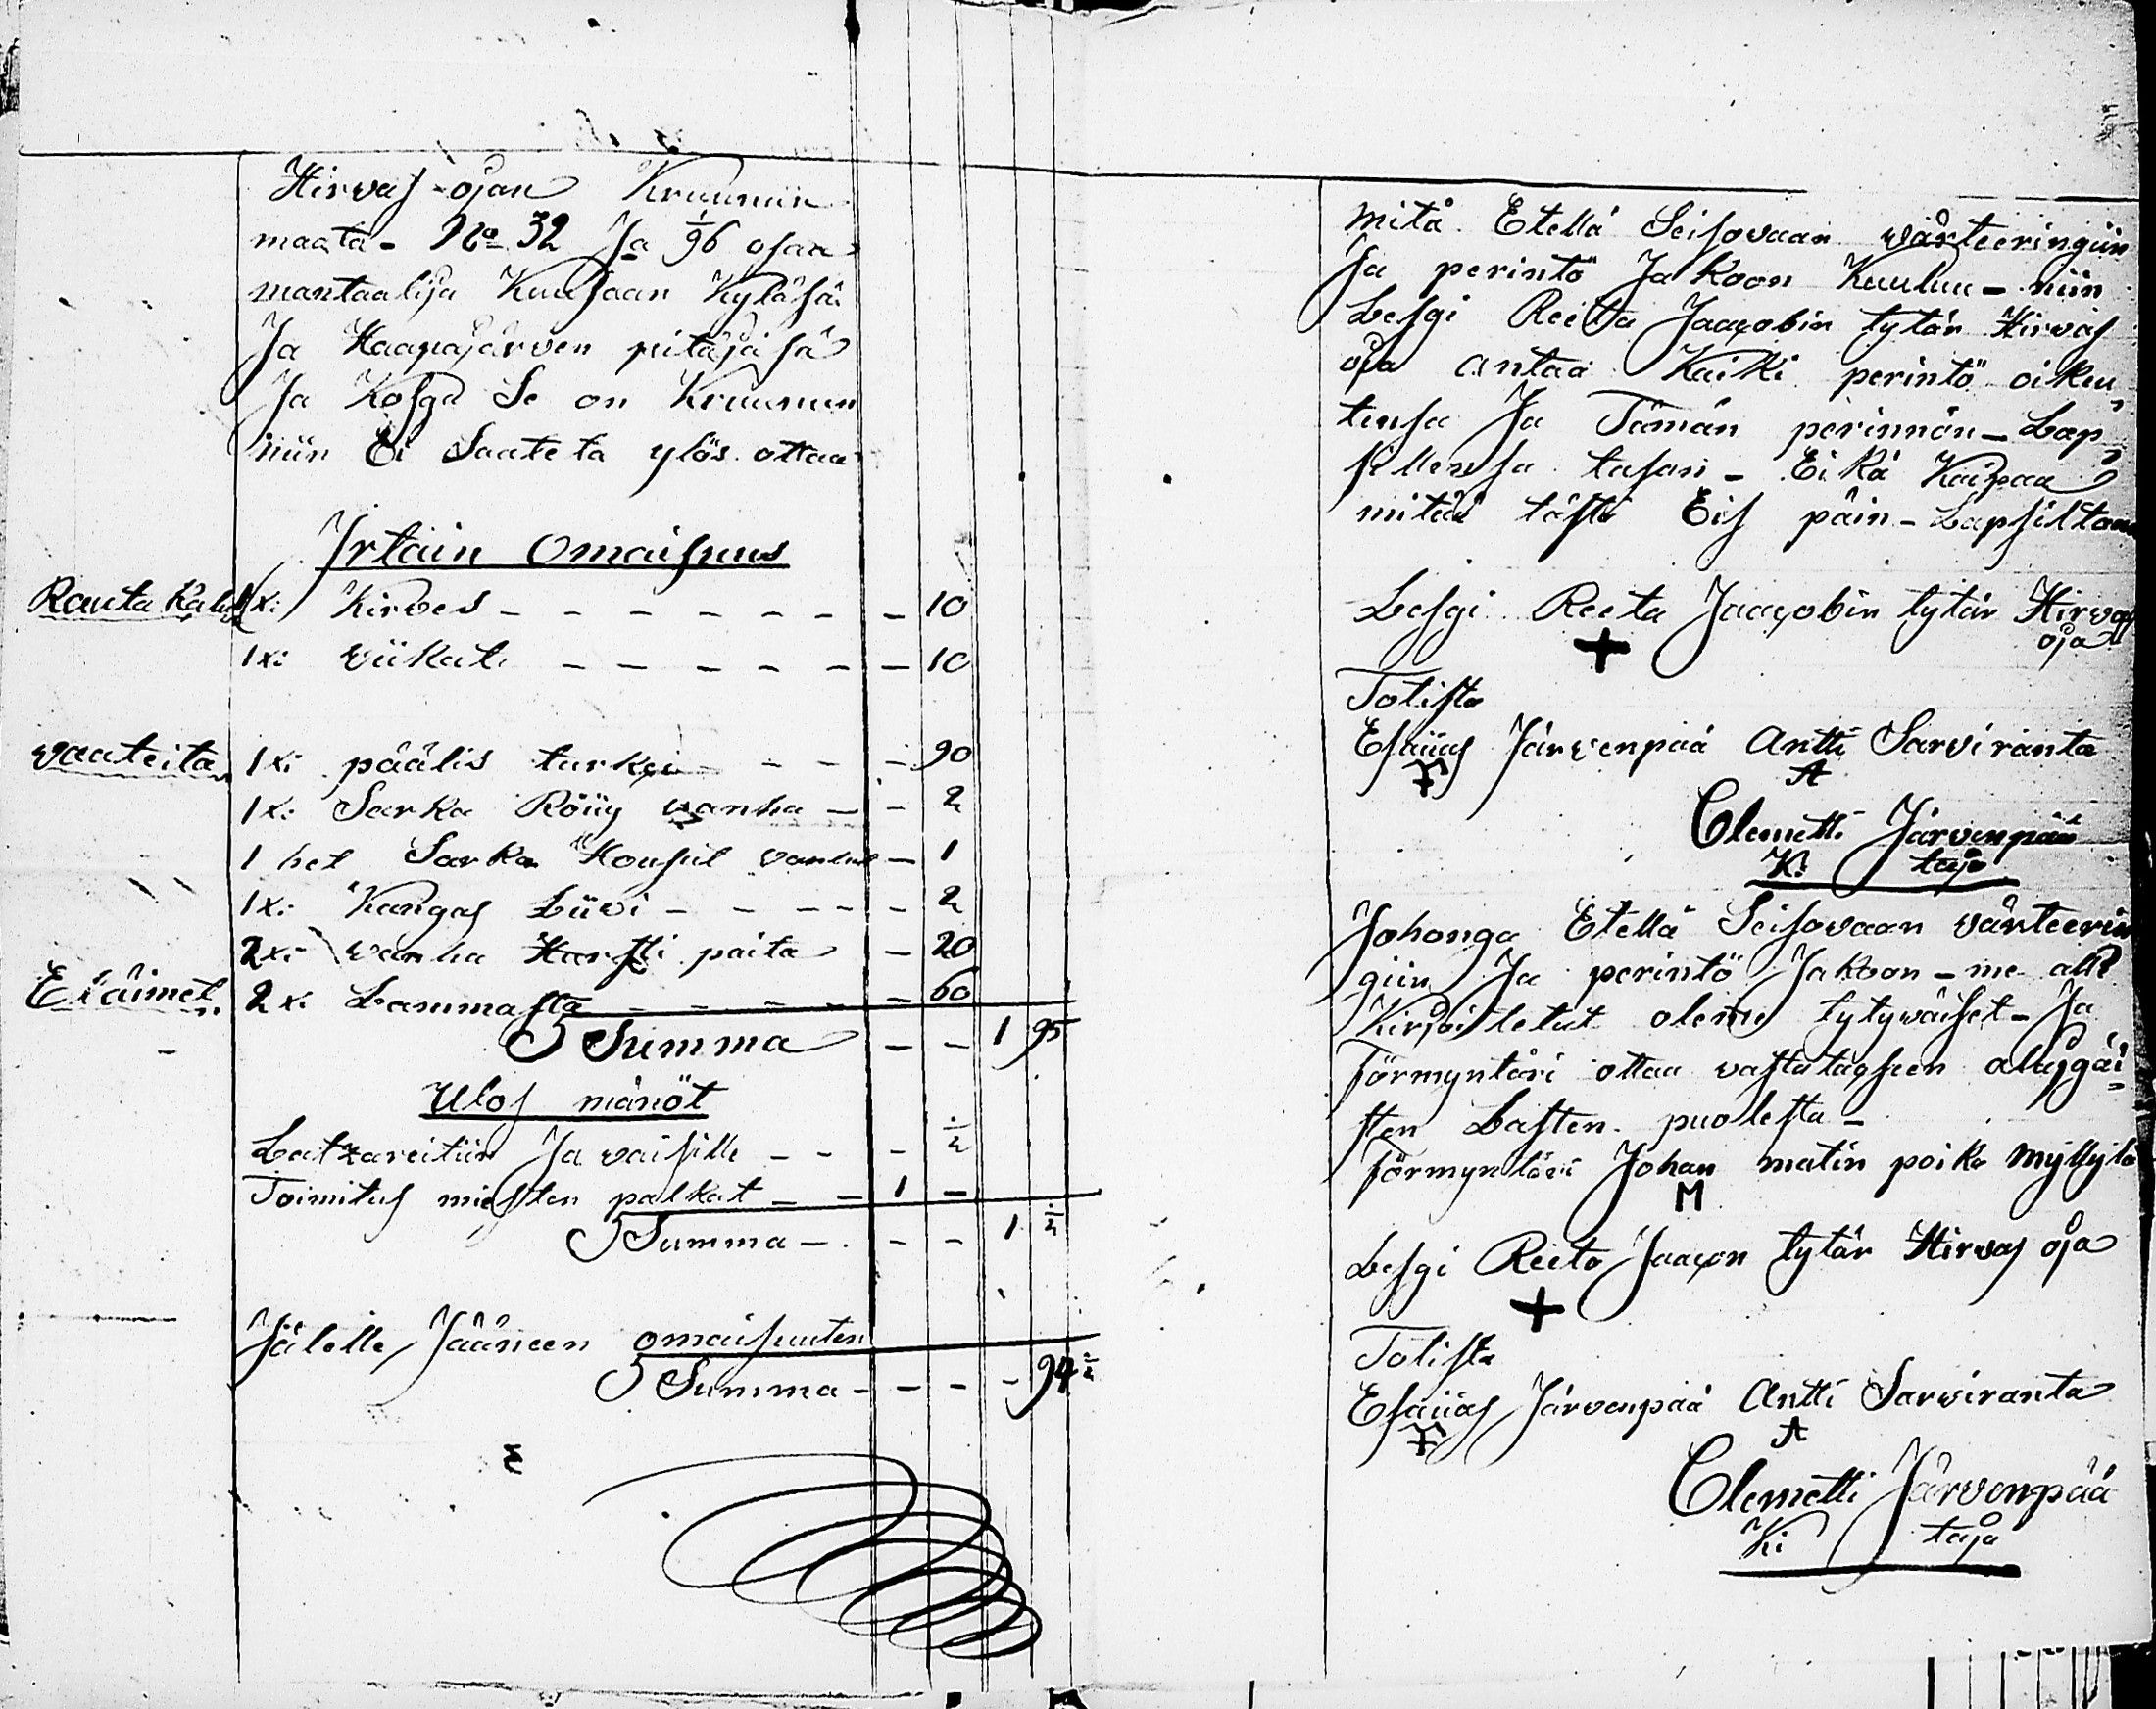 Hirvas-ojan Kruunun
maata - No 32 Ja 1/96 osaa
mantaalija Kuusaan Kyläsä
Ja Haapajärven pitäjäsä
Ja Kosga Se on Kruunun
niin Ei Saateta ylös ottaa
Irtain Omaisuus
Rauta Kalut 1 x: Kirves - - - - - - - 10
1 x: viikate - - - - - - 10
vaateita 1 x: päälis turkki - - - - 90
1 x: Sarka Röijy vanha - - 2
1 hel Sarka Housut vanhat - 1
1 x: Kangas Liivi - - - - - 2
2 x: vanha Hursti paita - 20
Eläimet 2 x: Lammasta - - - - - 60
Summa - - 1 95
Ulos mänöt
Latzareitiin Ja vaisille - - - ½
Toimitus miesten palkat - - 1 -
Summa - - - 1 ½
Jälelle Jääneen omaisuuten
Summa - - - - 94 ½
mitä Etellä Seisovaan värteeringiin
Ja perintö Jakoon Kuuluu - niin
Lesgi Reeta Jaacobin tytär Hirvas
oja antaa Kaiki perintö oikeu
tensa Ja Tämän perinnön - Lap
sillensa tasan - Eikä Kaipaa
mitää tästä Eis päin - Lapsiltans
Lesgi Reeta Jaacobin tytär Hirvas
oja
+
Totista
Esaijas Järvenpää Antti Sarviranta
A
Clemetti Järvenpää
K: taja
Johonga Etellä Seisovaan värteerin
giin Ja perintö Jakoon - me alle
Kirjoitetut oleme tytyväiset - Ja
Förmyntäri ottaa vastataqseen alaigäi
sten Lasten puolesta -
förmyntäri Johan matin poika Myllylä
M
Lesgi Reeta Jaacon tytär Hirvas oja
+
Totista
Esaijas Järvenpää Antti Sarviranta
A
Clemetti Järvenpää
Ki taja